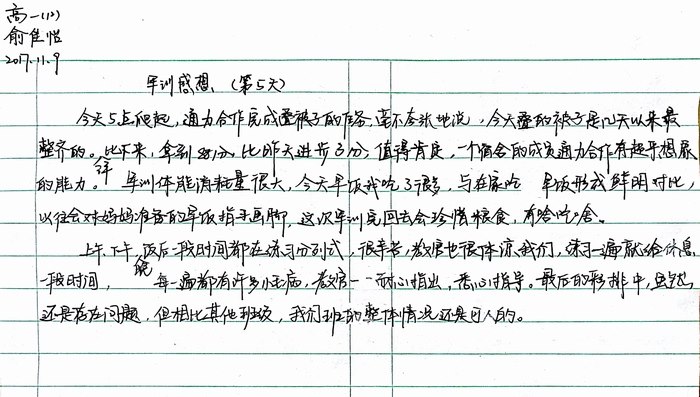 高一(12)
俞佳怡
2017.11.9
军训感想 (第5天)
今天5点爬起，通力合作完成叠被子的任务，毫不夸张地说，今天叠的被子是几天以来最
整齐的。比下来，拿到281分，比昨天进步3分，值得肯定，一个宿舍的成员通力合作有超乎想象
的能力。军训体能消耗量很大，今天早饭我吃了很多，与在家吃 早饭形成鲜明对比，
以往会对妈妈准备的早饭指手画脚，这次军训完回去会珍惜粮食，有啥吃啥。
上午、下午、饭后一段时间都在练习分列式，很辛苦，教官也很体谅我们，练习一遍就给休息
一段时间， 每一遍都有许多小毛病，教官一一耐心指出，悉心指导。最后的彩排中，虽然
还是存在问题，但相比其他班级，我们班的整体情况还是可人的。